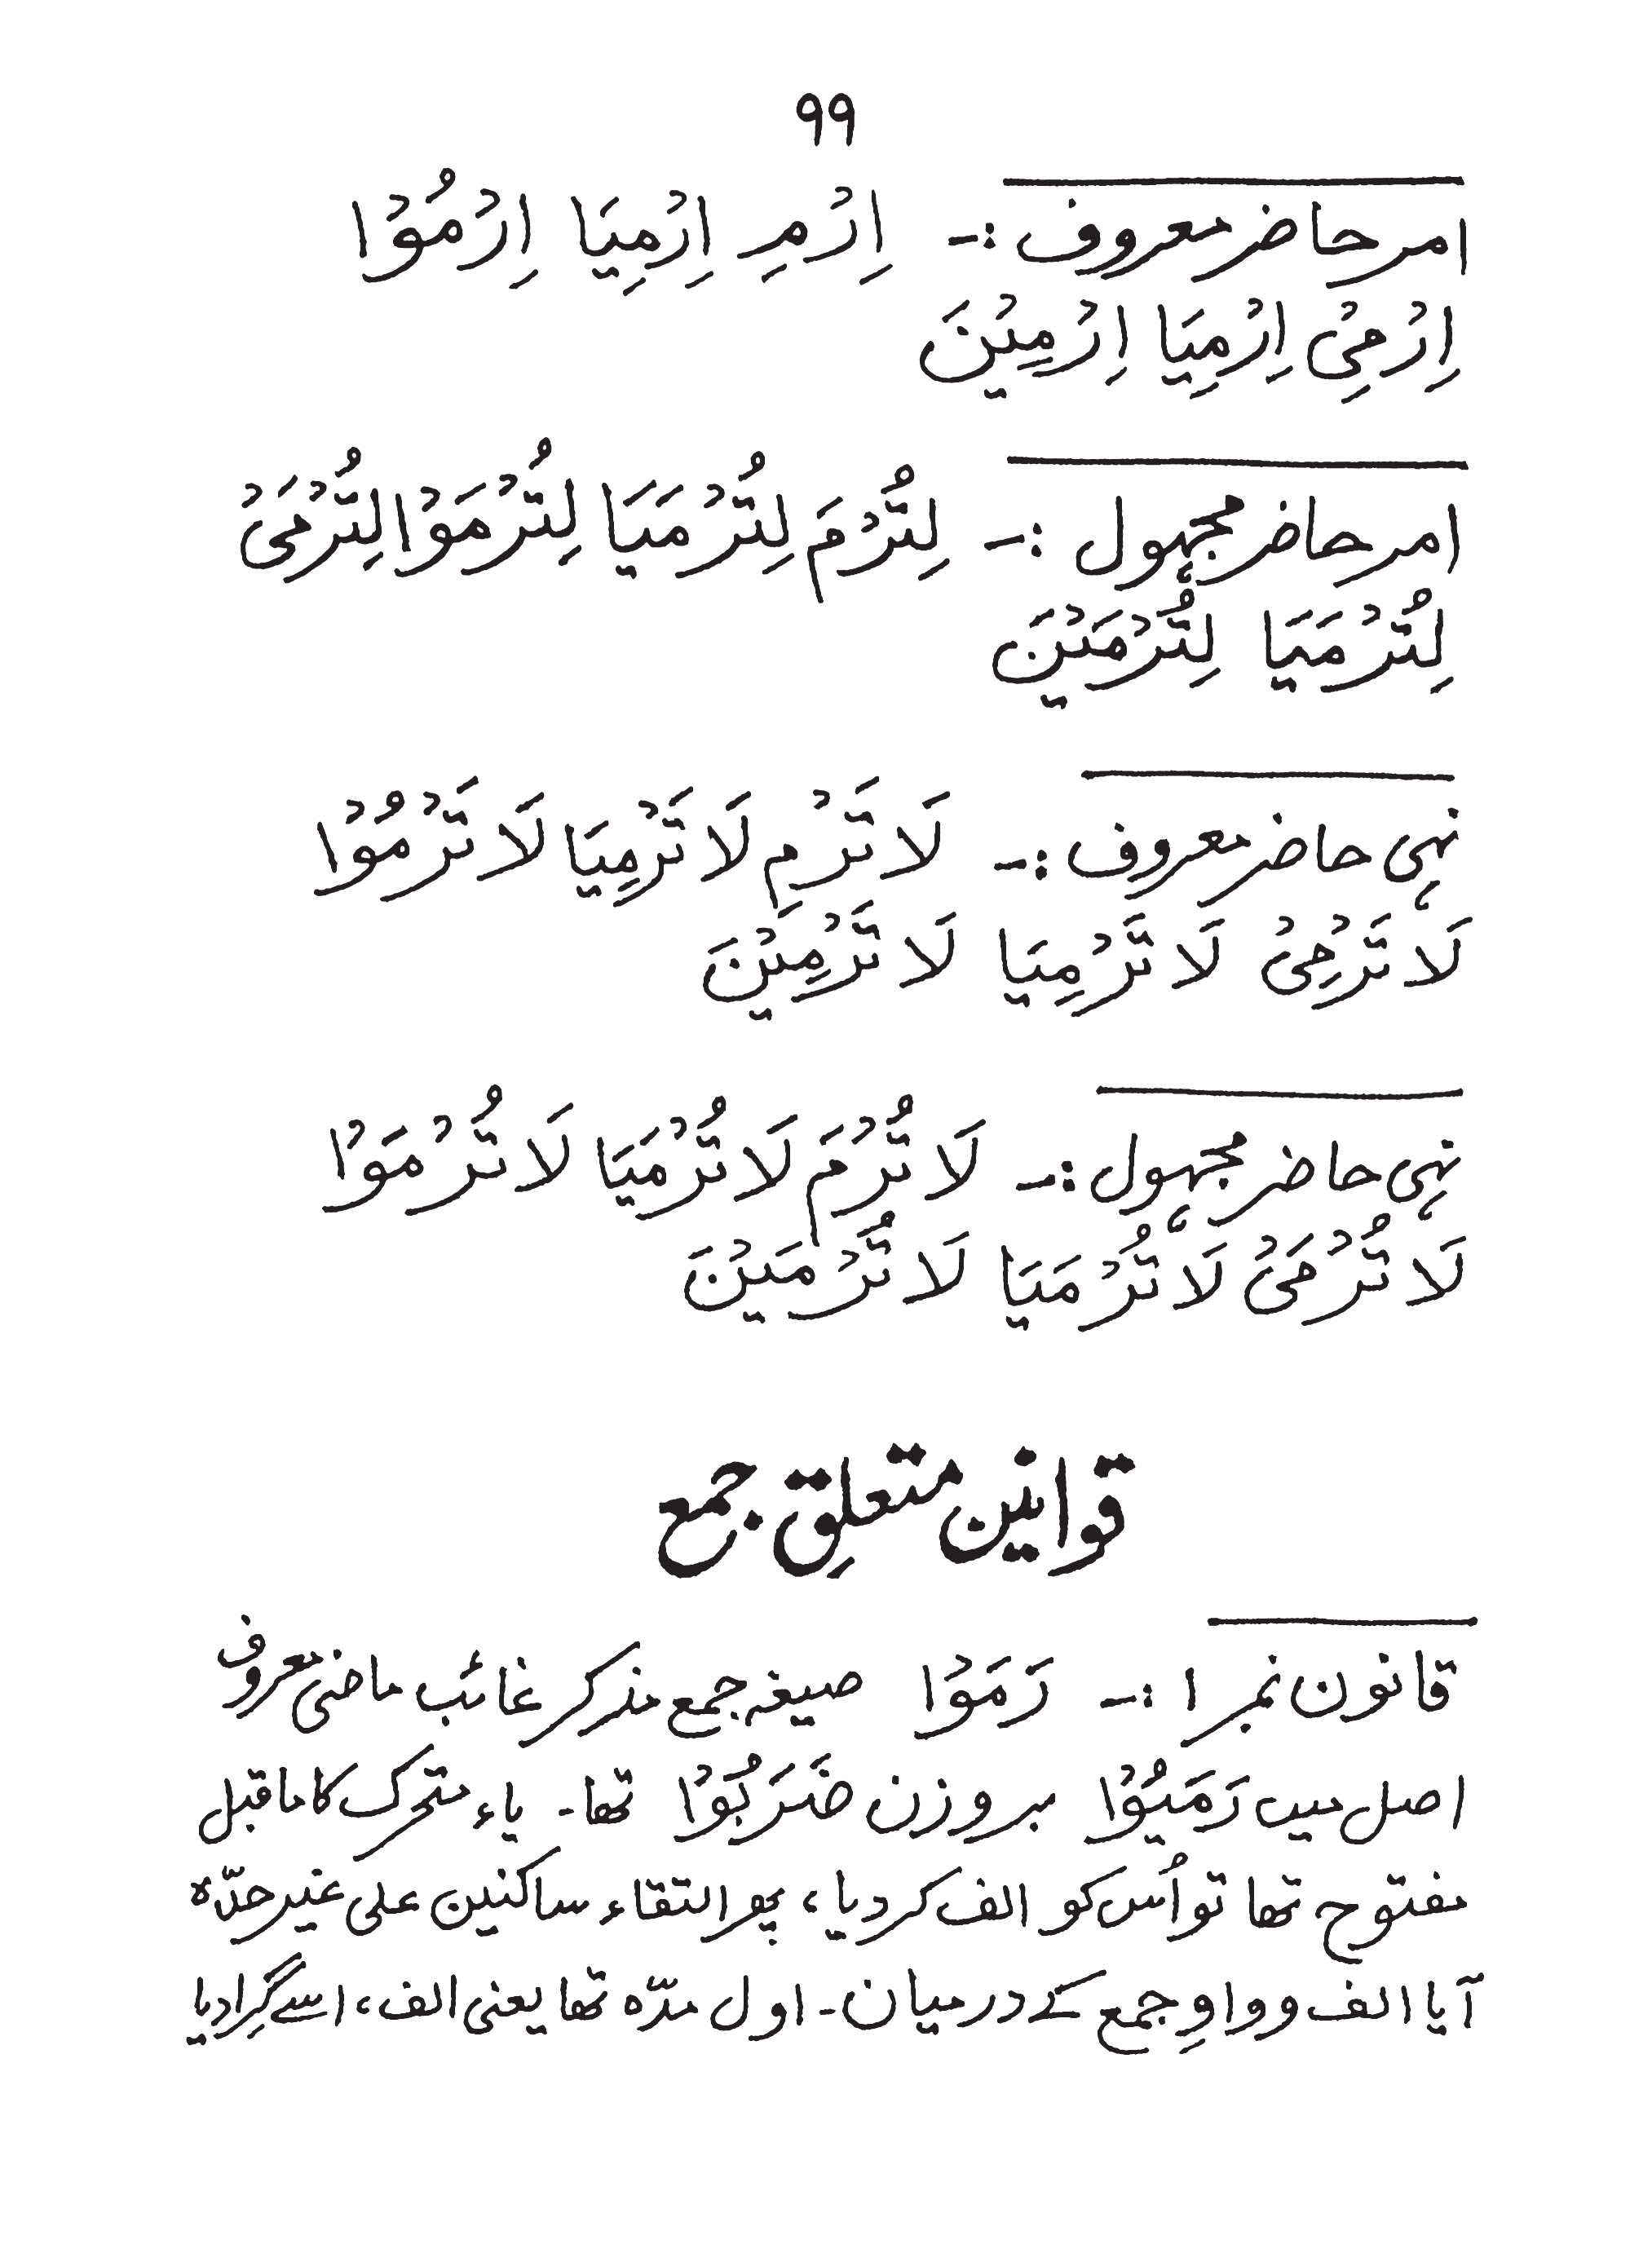 ۹۹
امر حاضر معروف :- اِرْمِ اِرْمِيَا اِرْمُوْا
اِرْمِىْ اِرْمِيَا اِرْمِيْنَ
امر حاضر مجہول :- لِتُرْمَ لِتُرْمَيَا لِتُرْمَوْا لِتُرْمَىْ
لِتُرْمَيَا لِتُرْمَيْنَ
نہی حاضر معروف :- لَا تَرْمِ لَا تَرْمِيَا لَا تَرْمُوْا
لَا تَرْمِىْ لَا تَرْمِيَا لَا تَرْمِيْنَ
نہی حاضر مجہول :- لَا تُرْمَ لَا تُرْمَيَا لَا تُرْمَوْا
لَا تُرْمَىْ لَا تُرْمَيَا لَا تُرْمَيْنَ
قوانین متعلقِ جمع
قانون نمبر ۱ :- رَمَوْا صیغہ جمع مذکر غائب ماضی معروف
اصل میں رَمَيُوْا بروزن ضَرَبُوْا تھا۔ یاء متحرک کا ماقبل
مفتوح تھا تو اُس کو الف کر دیا، پھر التقاء ساکنین علی غیر حدّہ
آیا الف و واوِ جمع کے درمیان۔ اول مدّہ تھا یعنی الف، اسے گِرا دیا